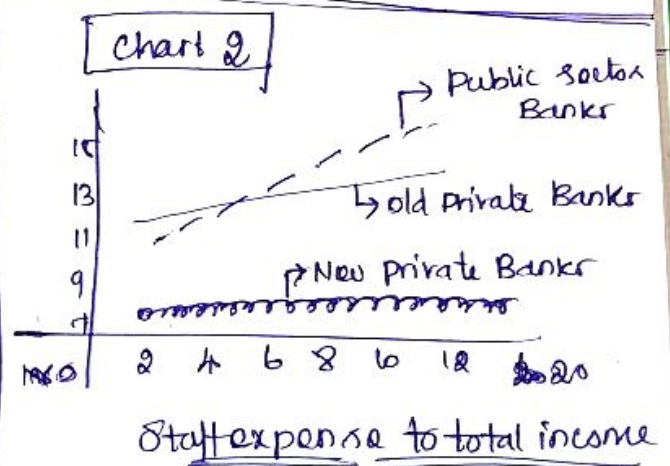 Chart 2
Public sector
Banks
15
13
old private Banks
11
New private Banks
9
7
0 2 4 6 8 10 12 20
Staff expense to total income